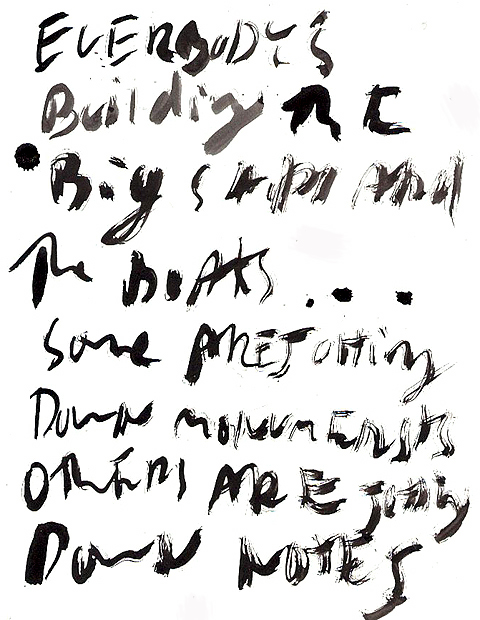 EVERBODY'S
Building THE
Big SHIPS AND
The BOATS...
Some ARE Jotting
Down MONUMENTS
OTHERS ARE jotting
Down NOTES